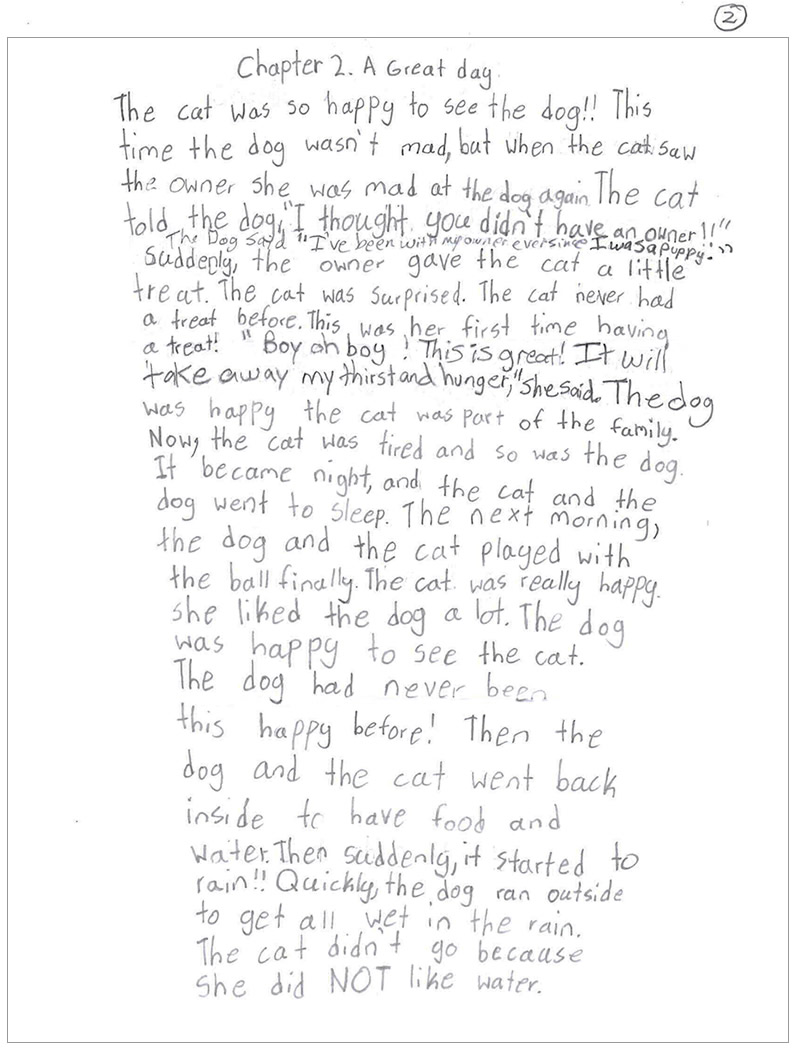 2
Chapter 2. A Great day.
The cat was so happy to see the dog!! This
time the dog wasn't mad, but when the cat saw
the owner she was mad at the dog again. The cat
told the dog, "I thought you didn't have an owner!!"
The Dog said "I've been with my owner ever since I was a puppy!"
Suddenly, the owner gave the cat a little
treat. The cat was surprised. The cat never had
a treat before. This was her first time having
a treat! "Boy oh boy! This is great! It will
take away my thirst and hunger," she said. The dog
was happy the cat was part of the family.
Now, the cat was tired and so was the dog.
It became night, and the cat and the
dog went to sleep. The next morning,
the dog and the cat played with
the ball finally. The cat was really happy.
she liked the dog a lot. The dog
was happy to see the cat.
The dog had never been
this happy before! Then the
dog and the cat went back
inside to have food and
water. Then suddenly, it started to
rain!! Quickly, the dog ran outside
to get all wet in the rain.
The cat didn't go because
She did NOT like water.